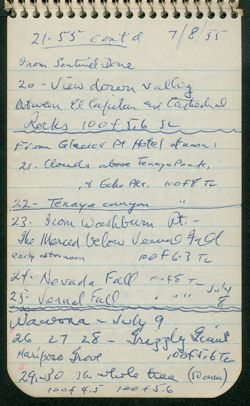 21-55 cont'd 7/8/55
From Sentinel Dome
20 - View down valley
Between El Capitan and Cathedral
Rocks 100 f 5.6
From Glacier Pt. Hotel
21. Clouds above Tenaya Peak,
& Echo Pks. 100 f 8
22 - Tenaya canyon "
23. From Washburn Pt. -
The Merced below Vernal Fall
early afternoon 100 f 6.3
24 - Nevada Fall
25 - Vernal Fall " " July 8
Wawona - July 9
26 27 28 - Grizzly Giant
Mariposa Grove 100 f 5.6
29, 30 The whole tree
100 f 4.5 100 f 5.6